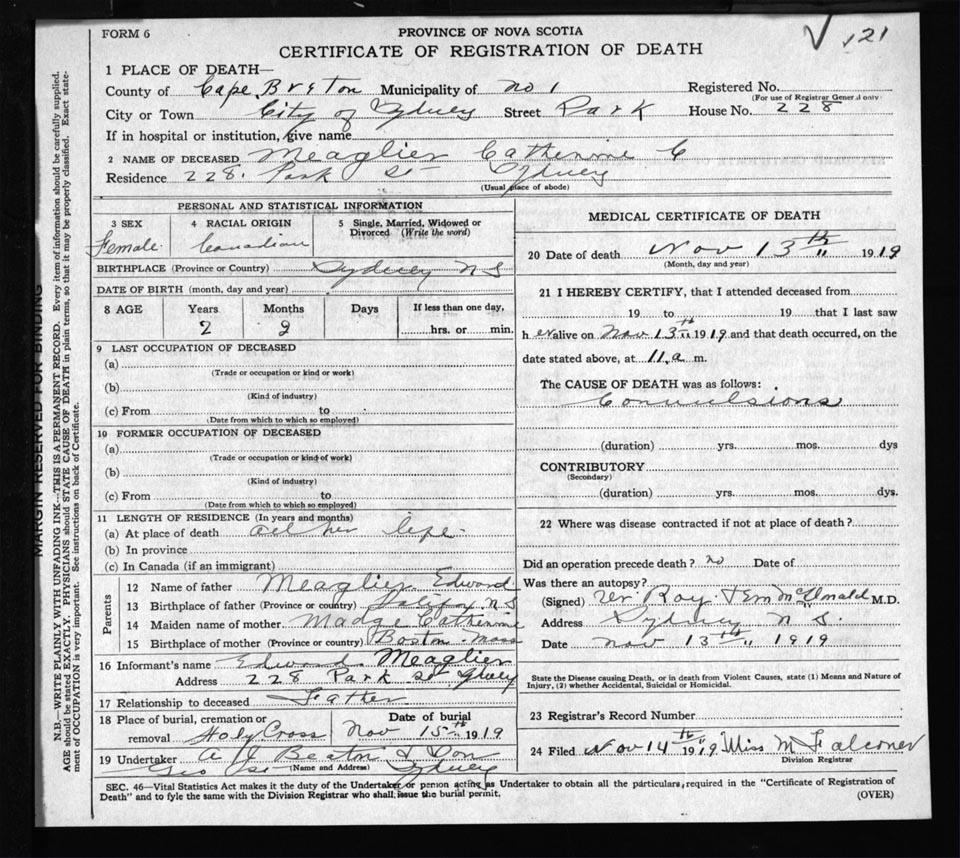 FORM 6
PROVINCE OF NOVA SCOTIA
CERTIFICATE OF REGISTRATION OF DEATH
121
1 PLACE OF DEATH—
County of Cape Breton Municipality of No 1 Registered No.
(For use of Registrar General only)
City or Town City of Sydney Street Park House No. 228
If in hospital or institution, give name
2 NAME OF DECEASED Meaglier Catherine C
Residence 228 Park St Sydney
(Usual place of abode)
PERSONAL AND STATISTICAL INFORMATION
3 SEX 4 RACIAL ORIGIN 5 Single, Married, Widowed or
Divorced (Write the word)
Female Canadian
BIRTHPLACE (Province or Country) Sydney N S
DATE OF BIRTH (month, day and year)
8 AGE Years Months Days If less than one day,
2 9 hrs. or min.
9 LAST OCCUPATION OF DECEASED
(a)
(Trade or occupation or kind or work)
(b)
(Kind of industry)
(c) From to
(Date from which to which so employed)
10 FORMER OCCUPATION OF DECEASED
(a)
(Trade or occupation or kind of work)
(b)
(Kind of industry)
(c) From to
(Date from which to which so employed)
11 LENGTH OF RESIDENCE (In years and months)
(a) At place of death all her life
(b) In province
(c) In Canada (if an immigrant)
Parents
12 Name of father Meaglier Edward
13 Birthplace of father (Province or country) Halifax N S
14 Maiden name of mother Madge Catherine
15 Birthplace of mother (Province or country) Boston Mass
16 Informant's name Edward Meaglier
Address 228 Park St
17 Relationship to deceased Father
18 Place of burial, cremation or Date of burial
removal Holy Cross Nov 15th 1919
19 Undertaker A J Beaton & Son
(Name and Address) Geo St Sydney
MEDICAL CERTIFICATE OF DEATH
20 Date of death Nov 13th 1919
(Month, day and year)
21 I HEREBY CERTIFY, that I attended deceased from
19 to 19 that I last saw
her alive on Nov 13th 1919 and that death occurred, on the
date stated above, at 11 a m.
The CAUSE OF DEATH was as follows:
Convulsions
(duration) yrs. mos. dys
CONTRIBUTORY
(Secondary)
(duration) yrs. mos. dys.
22 Where was disease contracted if not at place of death?
Did an operation precede death? no Date of
Was there an autopsy?
(Signed) Roy McDonald M.D.
Address Sydney N. S.
Date Nov 13th 1919
State the Disease causing Death, or in death from Violent Causes, state (1) Means and Nature of
Injury, (2) whether Accidental, Suicidal or Homicidal.
23 Registrar's Record Number
24 Filed Nov 14th 1919 Miss M Falconer
Division Registrar
SEC. 46—Vital Statistics Act makes it the duty of the Undertaker or person acting as Undertaker to obtain all the particulars required in the "Certificate of Registration of
Death" and to fyle the same with the Division Registrar who shall issue the burial permit.
(OVER)
MARGIN RESERVED FOR BINDING
N.B.—WRITE PLAINLY WITH UNFADING INK—THIS IS A PERMANENT RECORD. Every item of information should be carefully supplied.
AGE should be stated EXACTLY. PHYSICIANS should STATE CAUSE OF DEATH in plain terms, so that it may be properly classified. Exact state-
ment of OCCUPATION is very important. See instructions on back of Certificate.